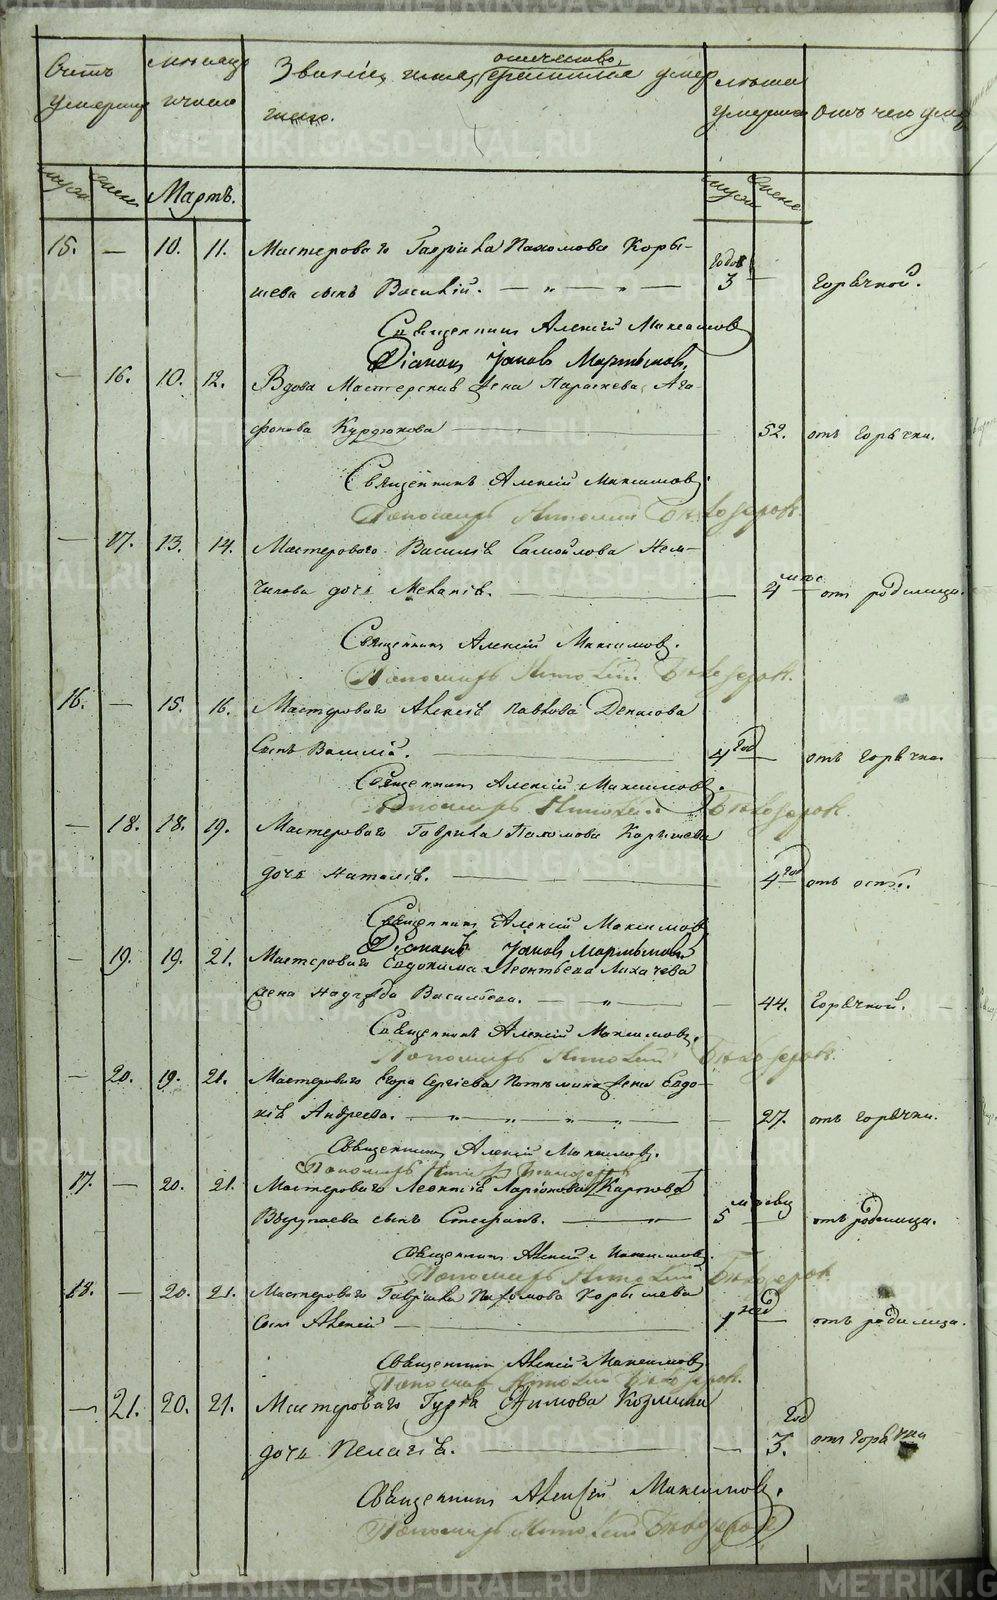 Счетъ умершихъ
Месяцъ и число
Званіе, имя, отчество, фамилія умершаго.
Лета умершаго
Отъ чего умер
муж. женс. Мартъ. муж. женс.
15. — 10. 11. Мастероваго Гавріила Пахомова Коры-
шева сынъ Василій. — „ — „ — годов 3 — Горячкой.
Священникъ Алексій Максимовъ
Діаконъ Іаковъ Мартыновъ.
— 16. 10. 12. Вдова Мастерская жена Параскева Ага-
фонова Курдюкова — 52. отъ горячки.
Священникъ Алексій Максимовъ.
Пономарь Николай
— 17. 13. 14. Мастероваго Василія Самойлова Нем-
чинова дочь Меланія. — 4 мѣс отъ родимца.
Священникъ Алексій Максимовъ.
Пономарь Николай
16. — 15. 16. Мастероваго Алексія Павлова Денисова
Сынъ Василій. — 4 год — отъ горячки
Священникъ Алексій Максимовъ.
Пономарь Николай
— 18. 18. 19. Мастероваго Гавріила Пахомова Корышева
дочь Наталія. — 4 год отъ оспы.
Священникъ Алексій Максимовъ
Діаконъ Іаковъ Мартыновъ
— 19. 19. 21. Мастероваго Евдокима Леонтьева Лихачева
жена Надежда Васильева. — „ — — 44. Горячкой.
Священникъ Алексій Максимовъ.
Пономарь Николай
— 20. 19. 21. Мастероваго Егора Сергіева Потемкина жена Евдо-
кія Андреева. — „ — „ — „ — 27. отъ горячки.
Священникъ Алексій Максимовъ.
Пономарь
17. — 20. 21. Мастероваго Леонтія Ларіонова Карпова
сынъ Стефанъ. — „ 5 месяц — отъ родимца.
Священникъ Алексій Максимовъ.
Пономарь Николай
18. — 20. 21. Мастероваго Гавріила Пахомова Корышева
Сынъ Алексій — 1 год — отъ родимца.
Священникъ Алексій Максимовъ
Пономарь Николай
— 21. 20. 21. Мастероваго Гурія Ефимова Козмина
дочь Пелагія. — 3. год отъ горячки
Священникъ Алексій Максимовъ.
Пономарь Николай
METRIKI.GASO-URAL.RU